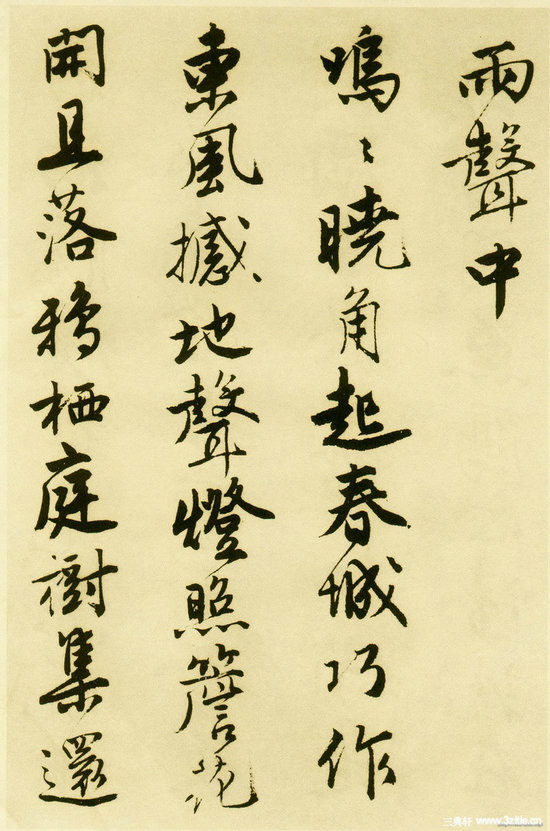 雨聲中
嗚〻曉角起春城巧作
東風撼地聲燈照簷花
開且落鴉栖庭樹集還
三典轩 www.3zitie.cn